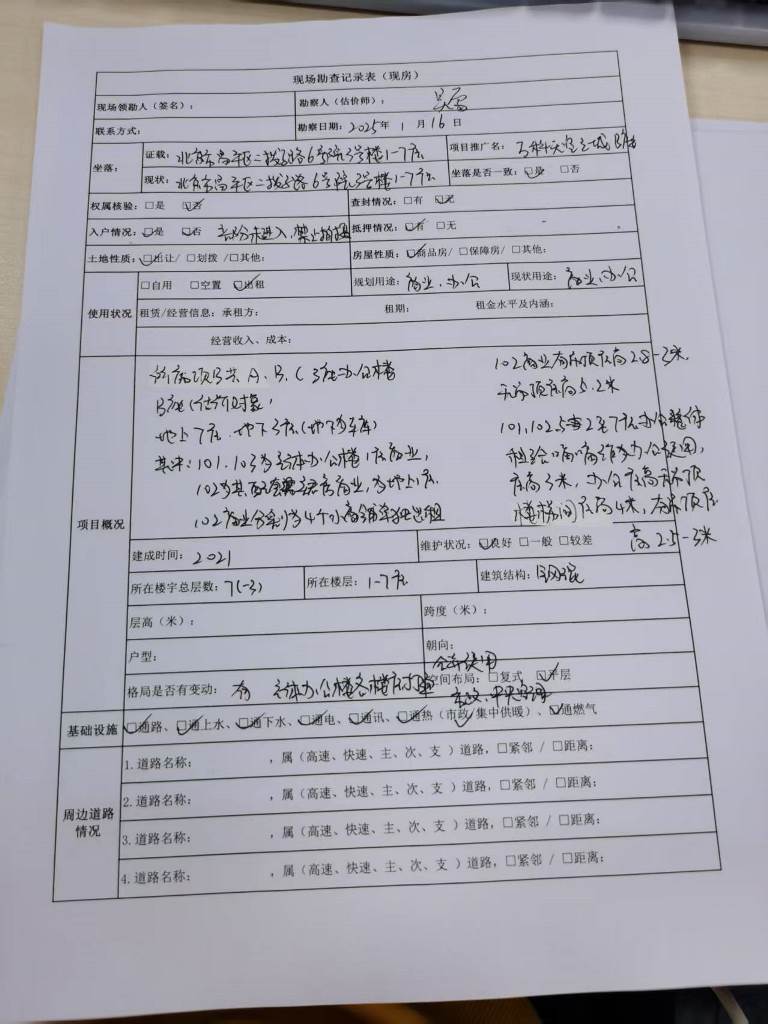 现场勘查记录表（现房）
现场领勘人（签名）： 勘察人（估价师）：
联系方式： 勘察日期：2025年 1月16日
坐落： 证载：北京市昌平区二拨子路6号院3号楼1-7层 项目推广名：
现状：北京市昌平区二拨子路6号院3号楼1-7层 坐落是否一致：☑是 □否
权属核验：□是 ☑否 查封情况：□有 ☑无
入户情况：☑是 □否 部分未进入，禁止拍摄 抵押情况：☑有 □无
土地性质：☑出让/ □划拨 /□其他: 房屋性质：☑商品房/ □保障房/ □其他:
使用状况 □自用 □空置 ☑出租 规划用途：商业、办公 现状用途：商业、办公
租赁/经营信息：承租方： 租期： 租金水平及内涵：
经营收入、成本：
项目概况
所在项目共A、B、C 3座办公楼
B座（估价对象）
地上7层，地下3层（地下为车库）
其中：101、103为主体办公楼1层商业，
102为其配套商业，为地上1层
102商业分割为4个小商铺单独出租
102商业有吊顶层高2.8-3米
无吊顶层高5.2米
101、102 2至7层办公整体
租给嘀嘀作为办公使用，
层高3米，办公层高无吊顶
楼梯间层高4米，有吊顶层
高2.5-3米
建成时间：2021 维护状况：☑良好 □一般 □较差
所在楼宇总层数：7(-3) 所在楼层：1-7层 建筑结构：钢混
层高（米）： 跨度（米）：
户型： 朝向：
格局是否有变动：有 主体办公楼各楼层打通 空间布局：□复式 ☑平层
基础设施 ☑通路、☑通上水、☑通下水、☑通电、☑通讯、☑通热（市政/集中供暖）、☑通燃气
周边道路情况
1.道路名称： ，属（高速、快速、主、次、支 ）道路，□紧邻 / □距离:
2.道路名称： ，属（高速、快速、主、次、支 ）道路，□紧邻 / □距离:
3.道路名称： ，属（高速、快速、主、次、支 ）道路，□紧邻 / □距离:
4.道路名称： ，属（高速、快速、主、次、支 ）道路，□紧邻 / □距离: